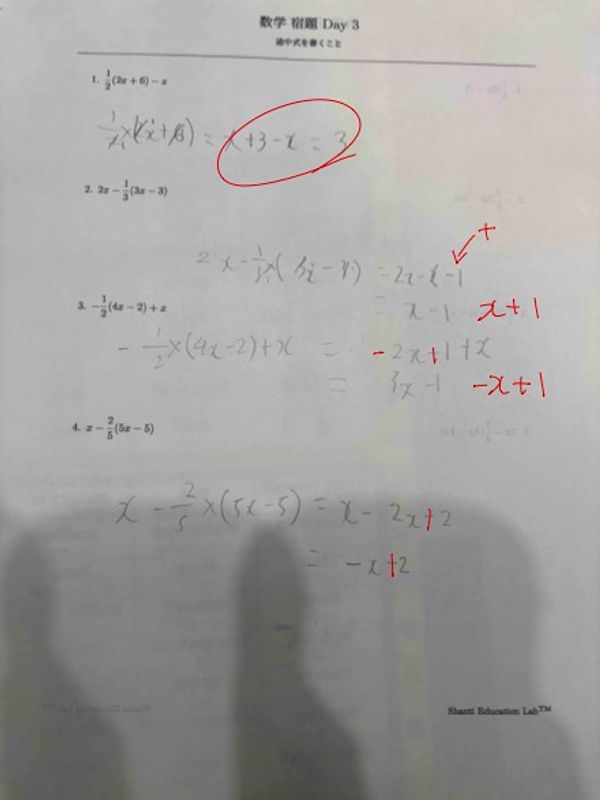 数学 宿題 Day 3
途中式を書くこと
1. \frac{1}{2}(2x + 6) − x
\frac{1}{2}×(2x+6) = x+3−x = 3
2. 2x − \frac{1}{3}(3x − 3)
+
2x − \frac{1}{3}×(3x − 3) = 2x−x−1
= x−1 x+1
3. −\frac{1}{2}(4x − 2) + x
− \frac{1}{2}×(4x−2)+x = −2x+1+x
= 3x−1 −x+1
4. x − \frac{2}{5}(5x − 5)
x − \frac{2}{5}×(5x−5) = x − 2x+2
= −x+2
Shanti Education Lab™